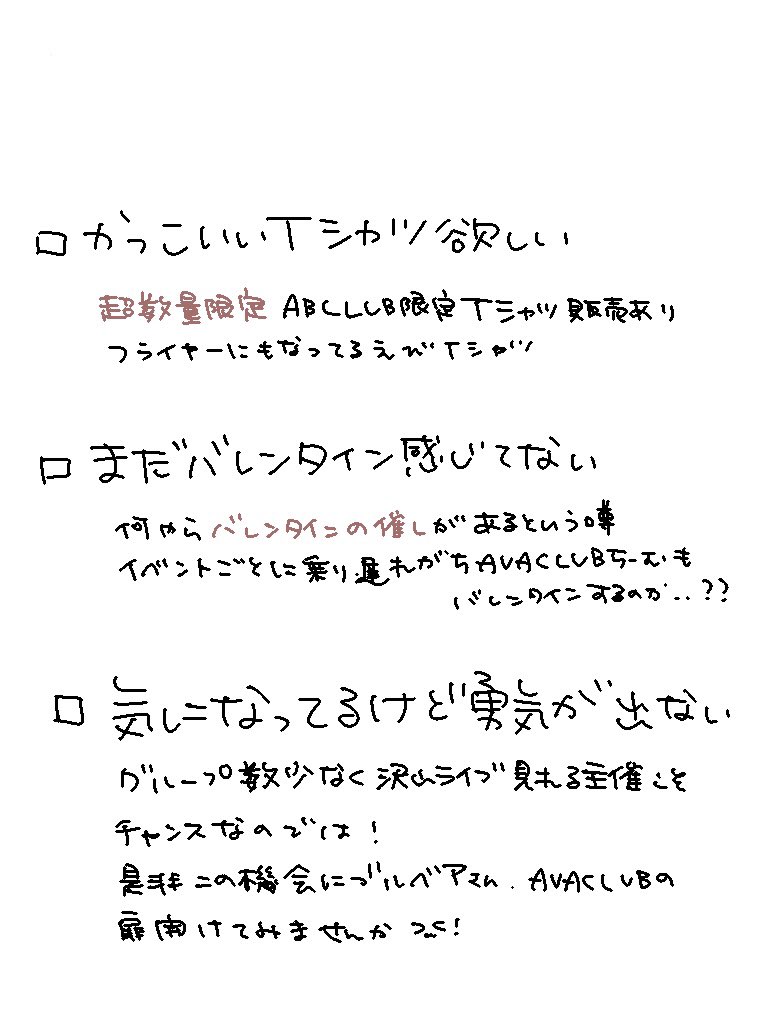 □ かっこいいTシャツ欲しい
超数量限定 ABCLUB限定Tシャツ販売あり
フライヤーにもなってるえびTシャツ
□ まだバレンタイン感じてない
何やらバレンタインの催しがあるという噂
イベントごとに乗り遅れがちAVACLUBちーむも
バレンタインするのか..??
□ 気になってるけど勇気が出ない
グループ数少なく沢山ライブ見れる主催こそ
チャンスなのでは!
是非この機会にブルベアさん、AVACLUBの
扉開けてみませんか